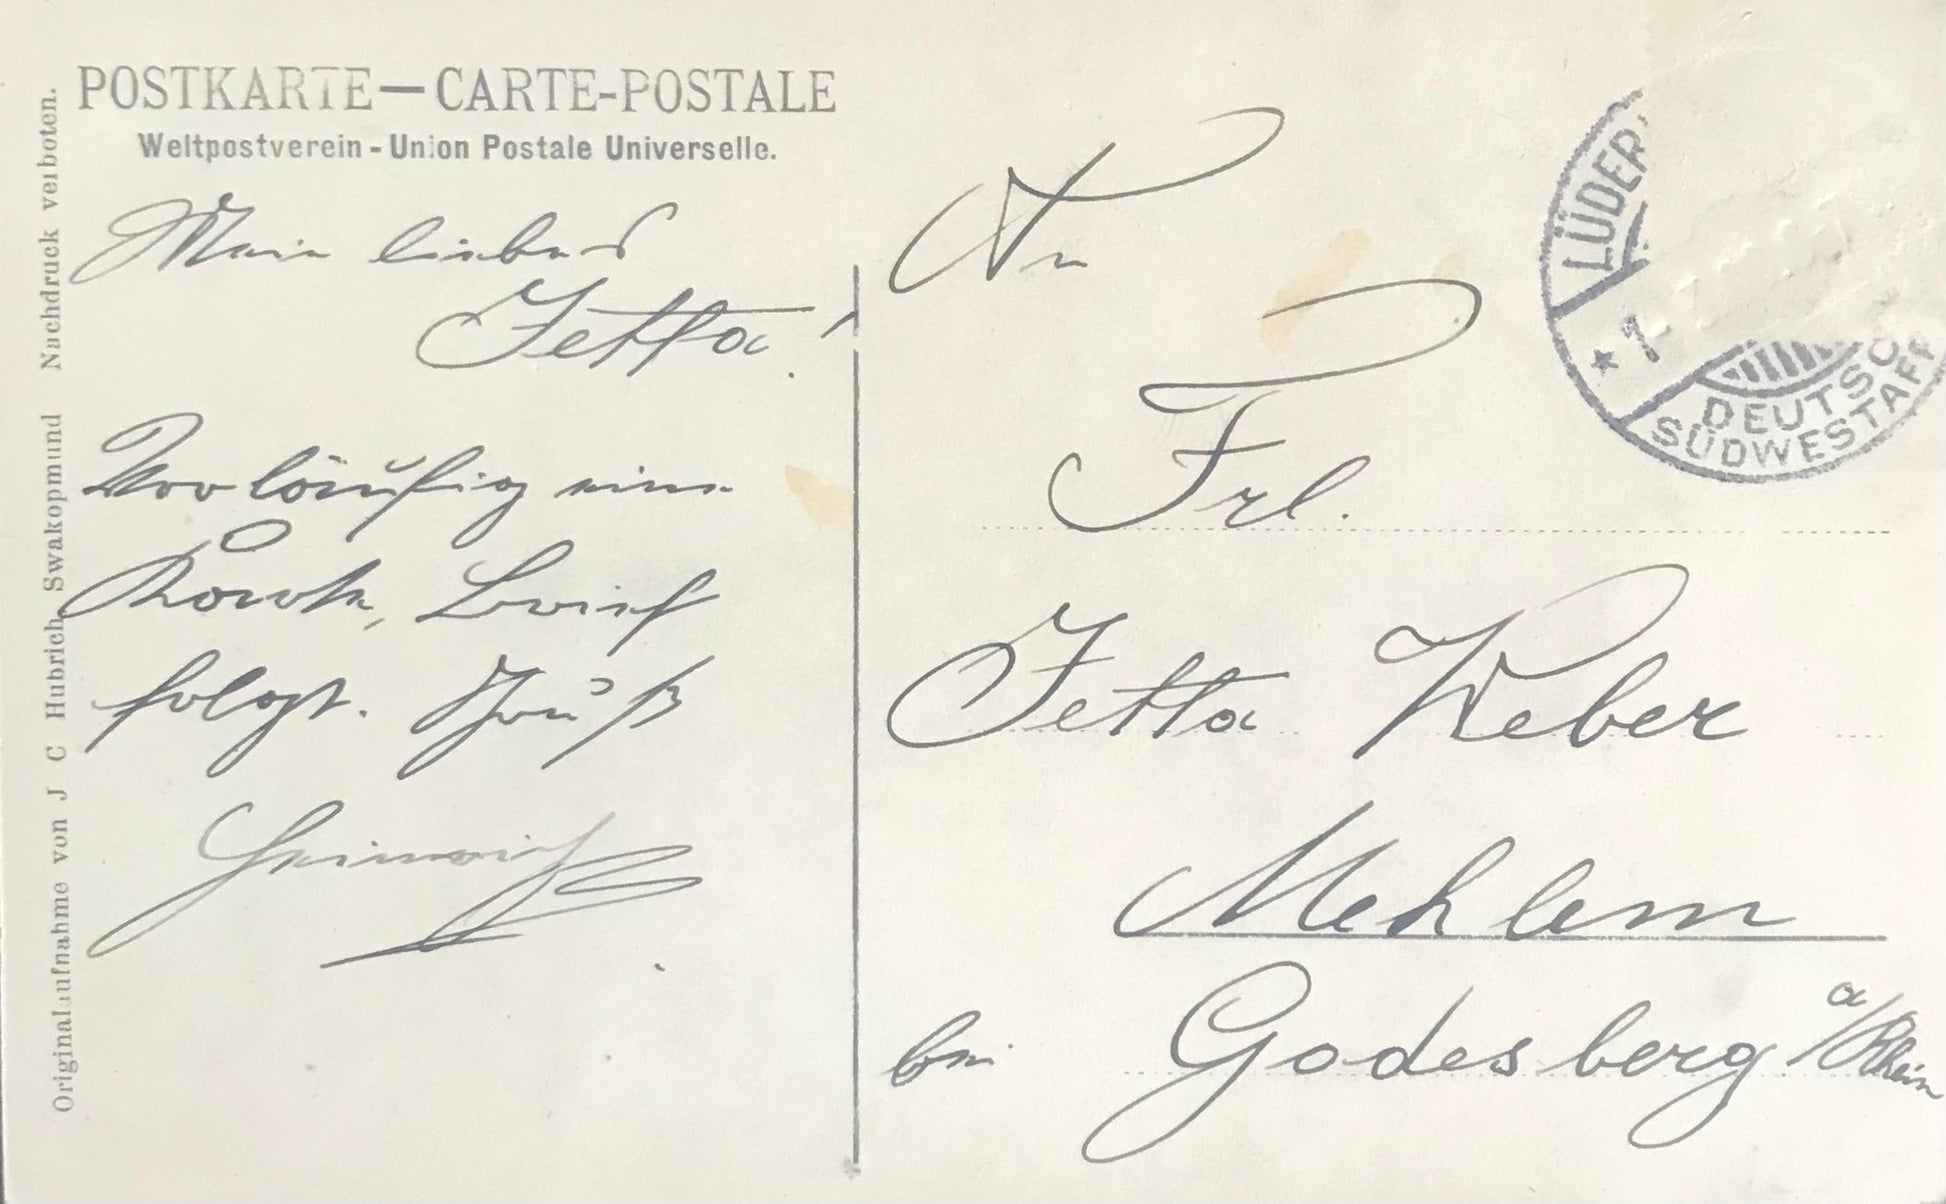 POSTKARTE — CARTE-POSTALE
Weltpostverein - Union Postale Universelle.
Originalaufnahme von J C Hubrich, Swakopmund Nachdruck verboten.
Mein liebes
Jetta!
Vorläufig eine
Karte, Brief
folgt. Gruß
Heinrich
An
Frl.
Jetta Weber
Mehlem
bei Godesberg a/Rhein
LÜDER
* 1-
DEUTSCH
SÜDWESTAFR